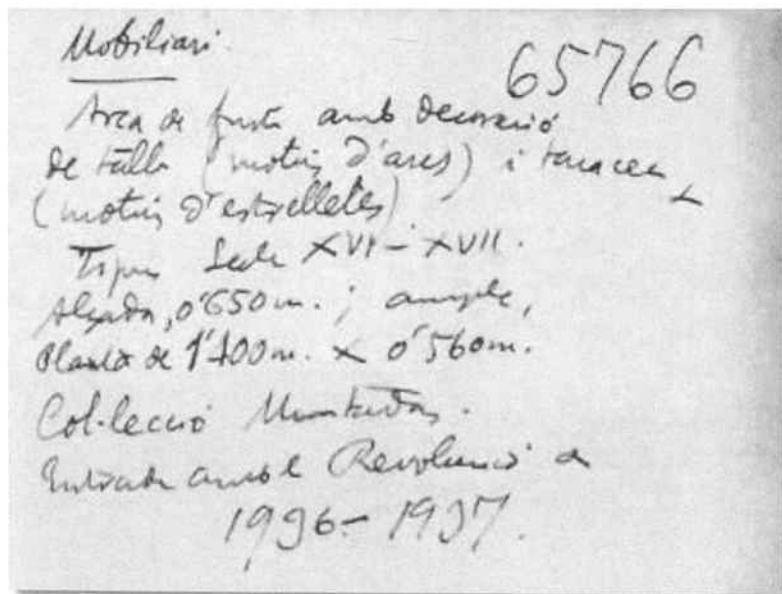 Mobiliari.
65766
Arca de fusta amb decoració
de talla (motius d'arcs) i taracea
(motius d'estrelletes)
Tipus Segle XVI-XVII.
Alçada, 0'650m.; ample,
Planta de 1'400m. x 0'560m.
Col·lecció Muntadas.
Entrada amb la Revolució de
1936-1937.